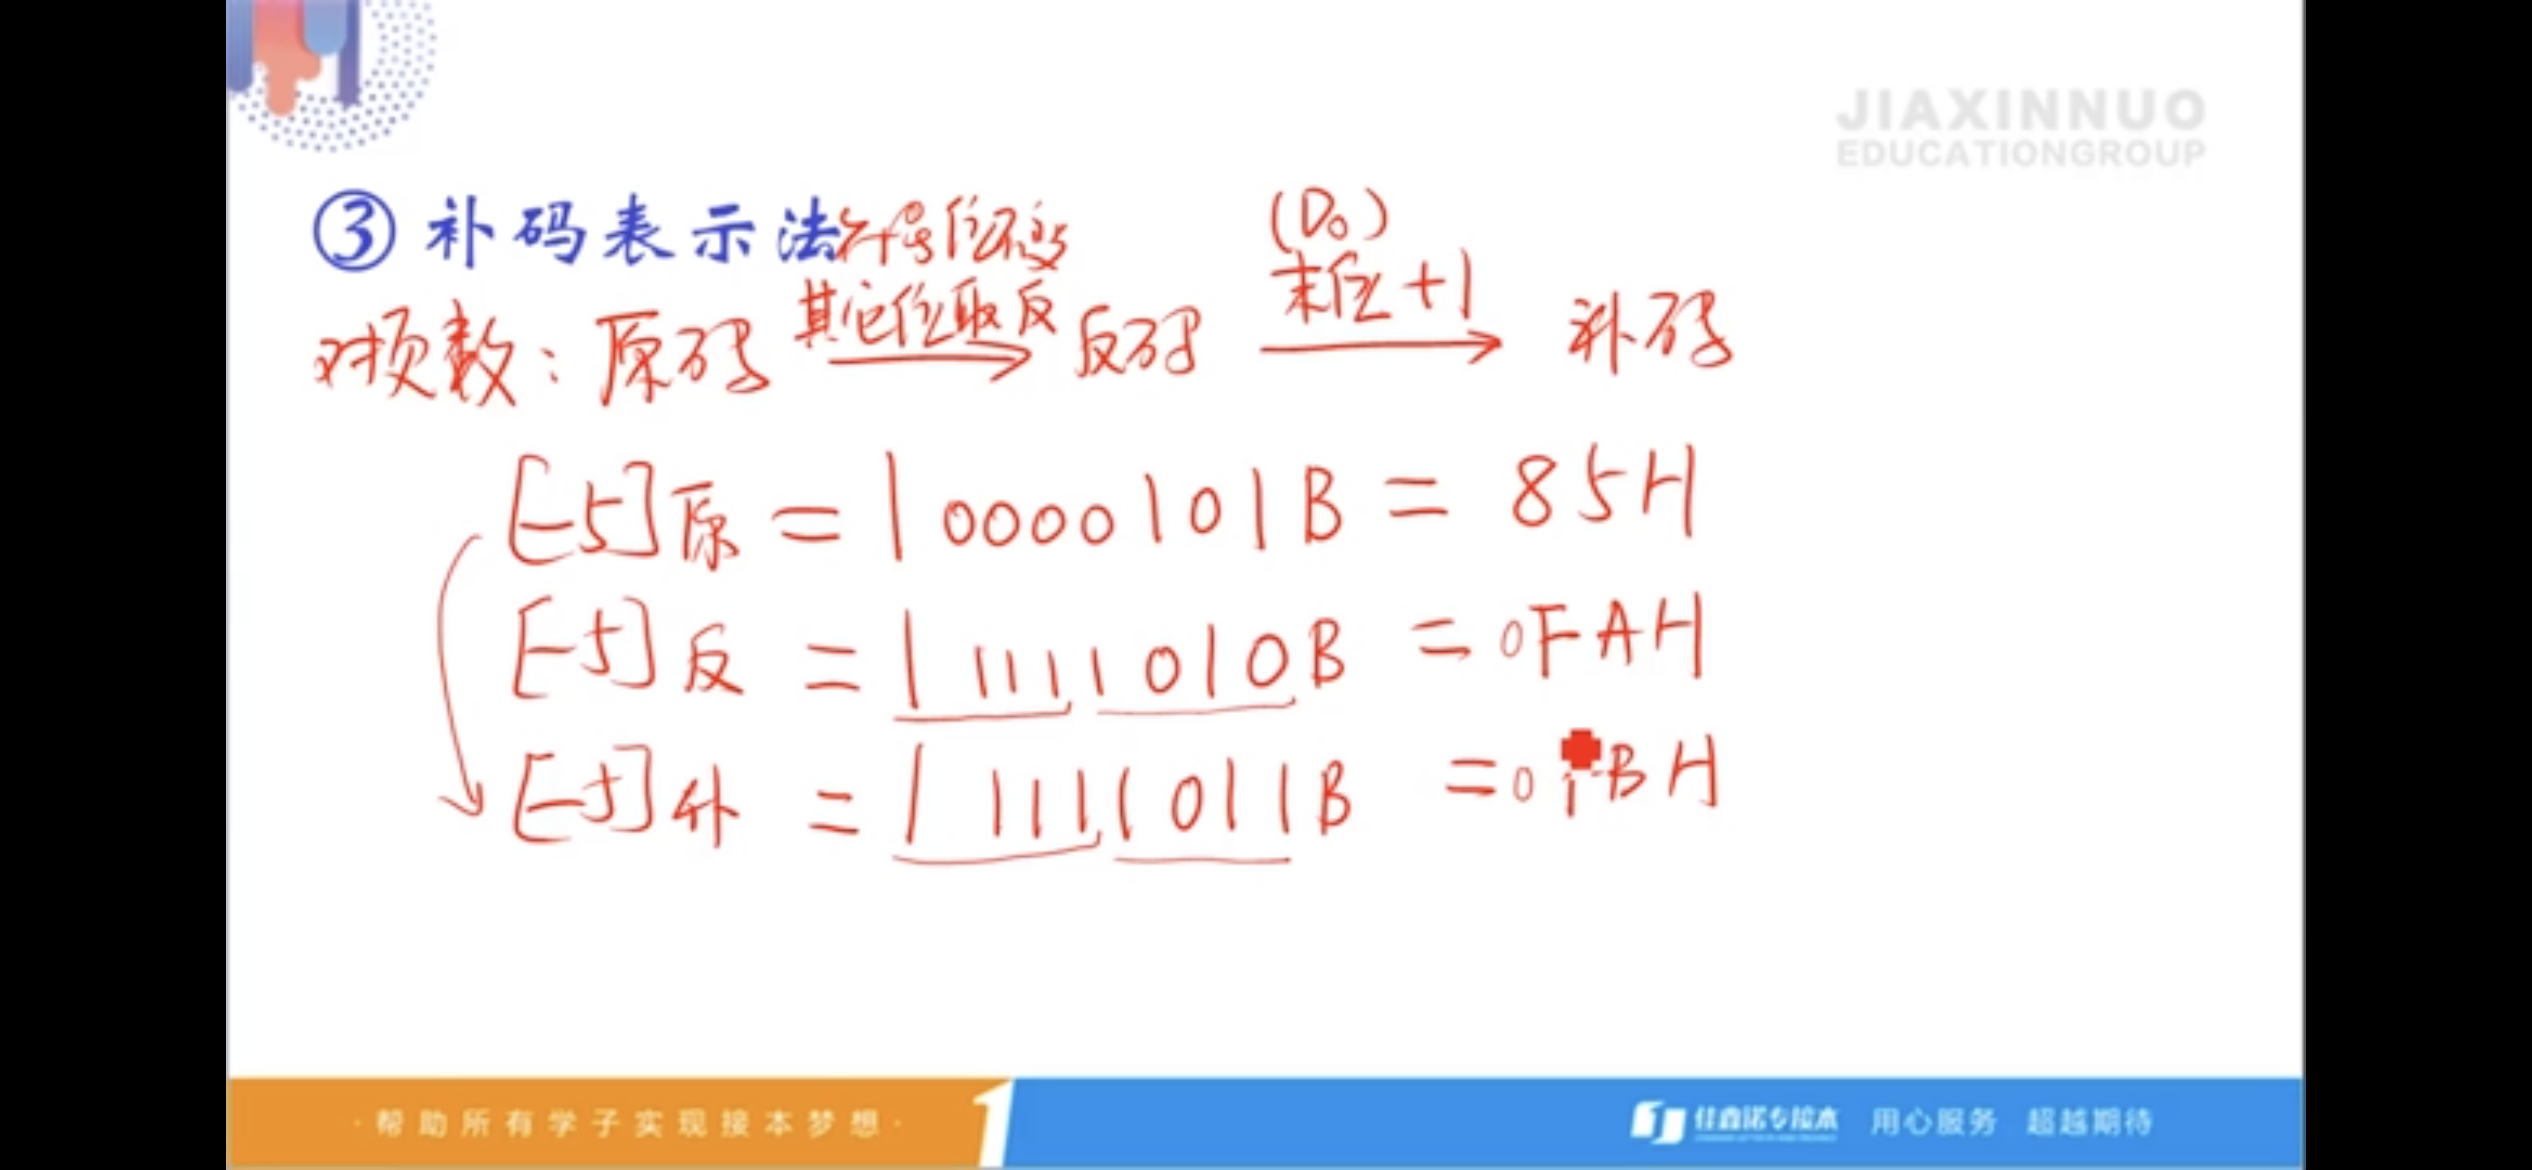 JIAXINNUO
EDUCATIONGROUP
③ 补码表示法 符号位不变 (D₀)
对负数：原码 其它位取反 反码 末位+1 补码
[-5]原 = 10000101B = 85H
[-5]反 = 11111010B = 0FAH
[-5]补 = 11111011B = 0FBH
·帮助所有学子实现接本梦想·
1
佳鑫诺专接本 用心服务 超越期待